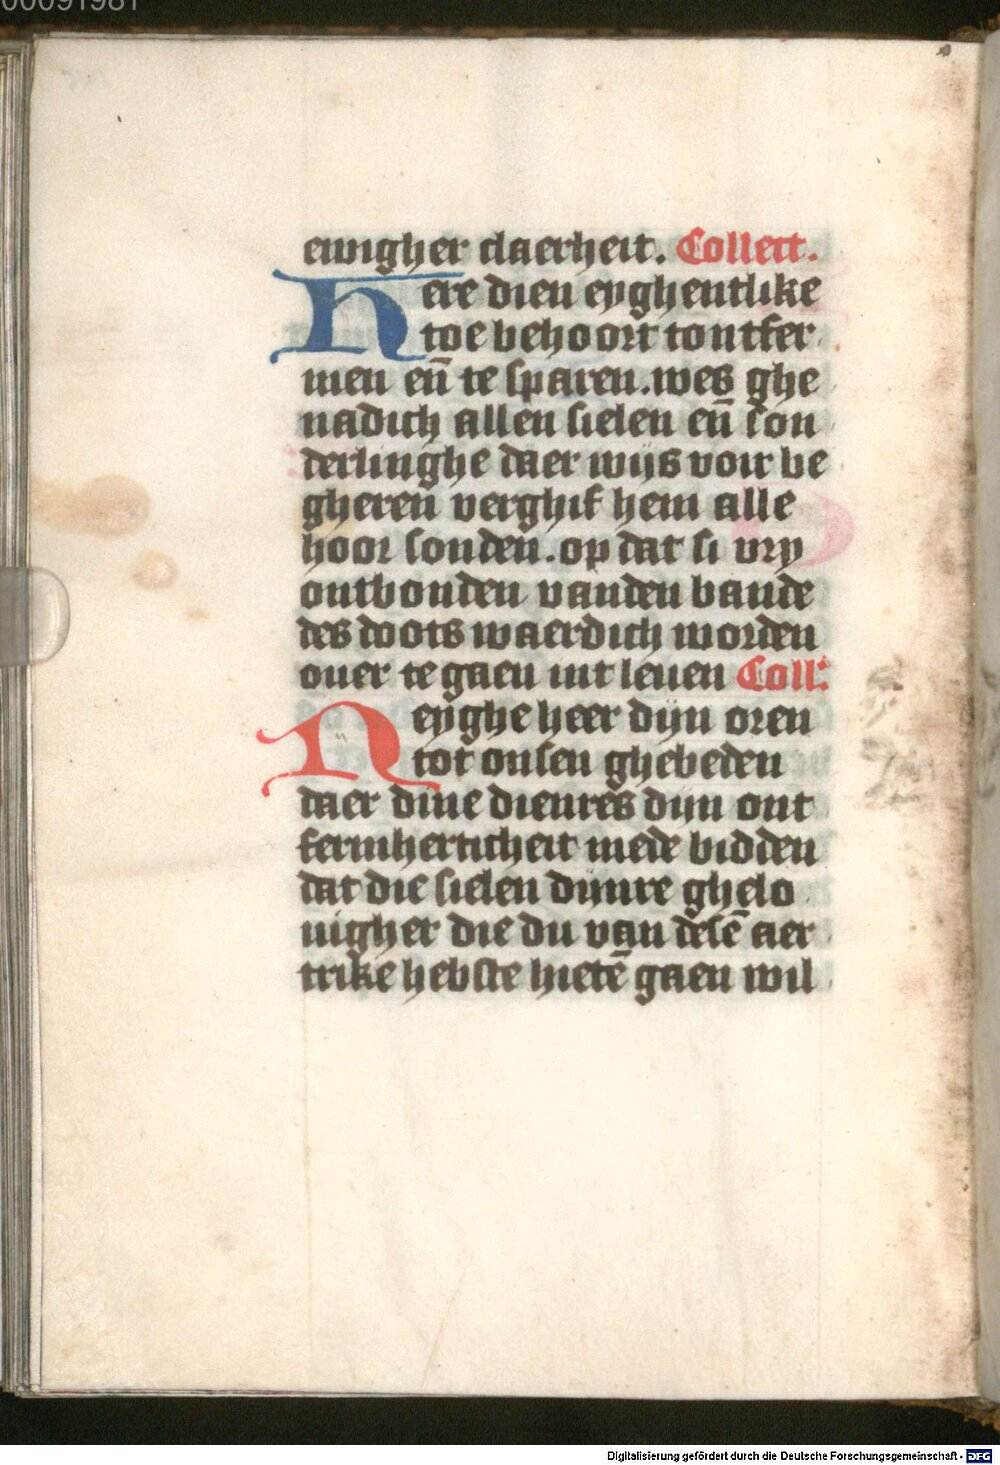 00091981
ewigher claerheit. Collect.
Here dien eyghentlike
toe behoort tontfer
men en̄ te sparen. wes ghe
nadich allen sielen en̄ son
derlinghe daer wijs voir be
gheren̄ verghif hem alle
hoor sonden. op dat si vry
ontbonden vanden bande
des doots waerdich worden
ouer te gaen int leuen Coll.
Neyghe heer dijn oren
tot onsen ghebeden
daer dine dienres dijn ont
fermherticheit mede bidden
dat die sielen dijnre ghelo
uigher die du van desē aer
trike hebste hietē gaen wil
Digitalisierung gefördert durch die Deutsche Forschungsgemeinschaft - DFG